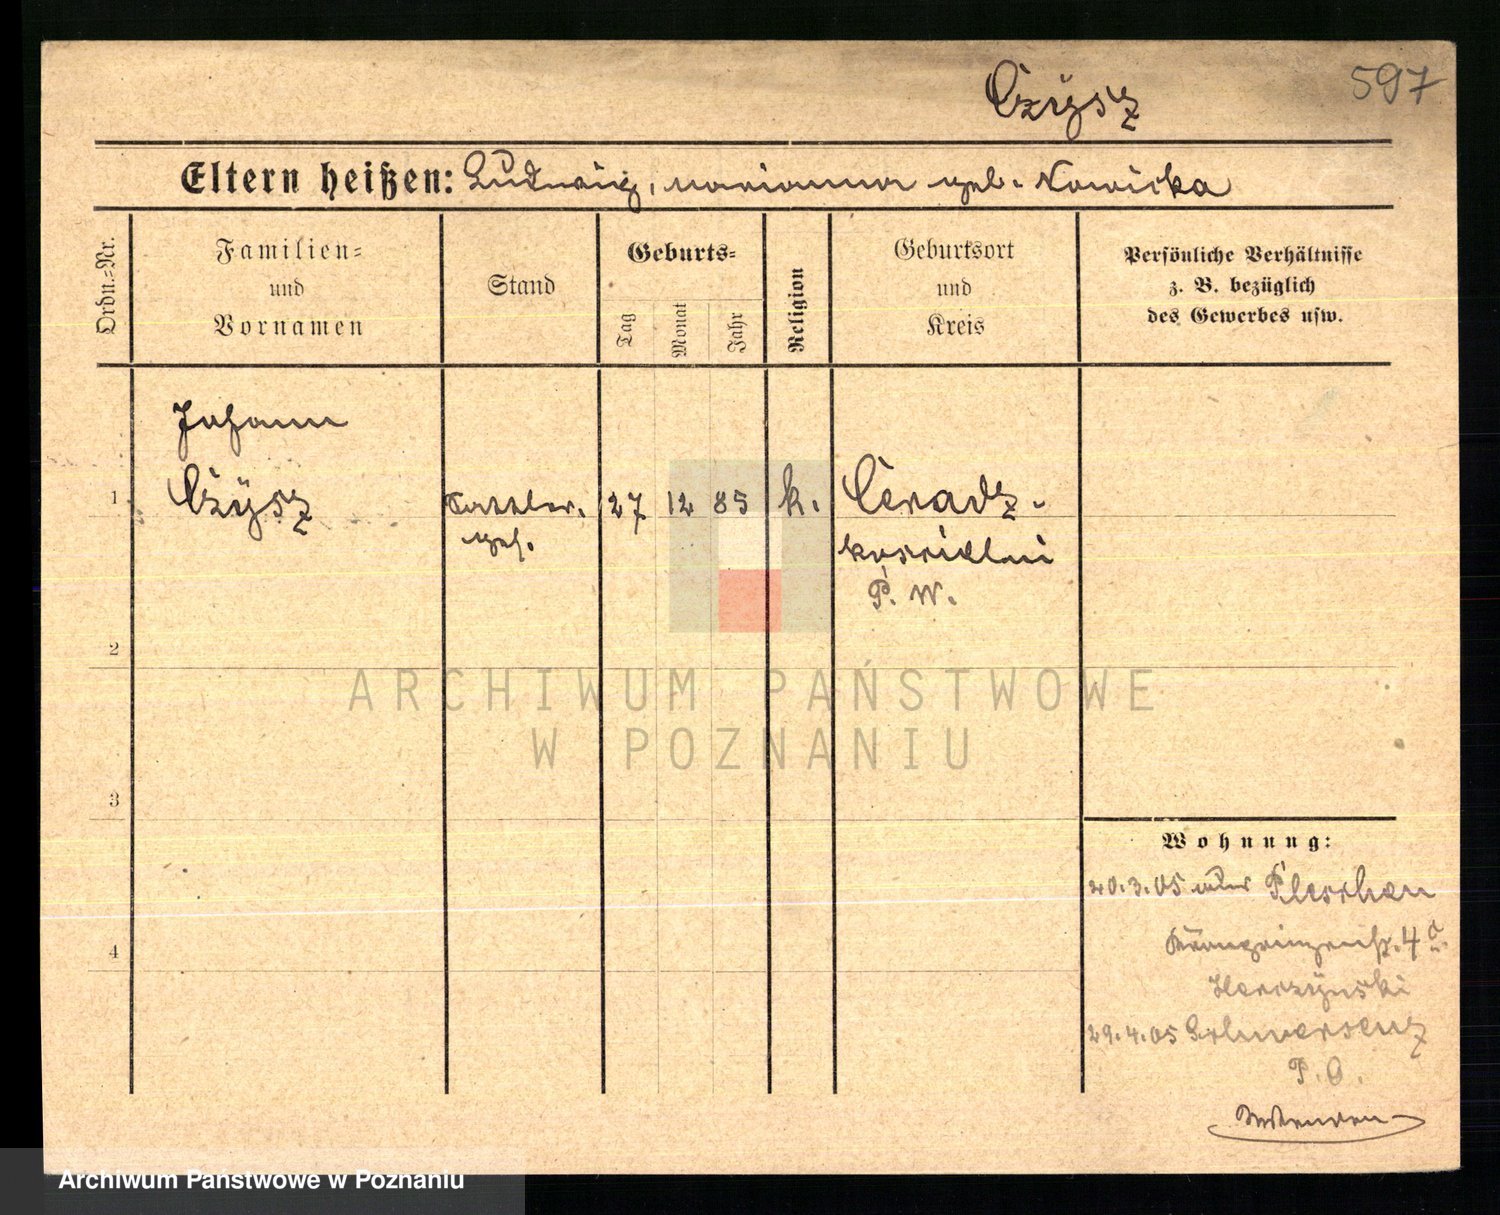 Czÿsz
597
Eltern heißen: Ludwig, Marianna geb. Nowicka
Ordn.=Nr.
Familien=
und
Vornamen
Stand
Geburts=
Tag
Monat
Jahr
Religion
Geburtsort
und
Kreis
Persönliche Verhältnisse
z. B. bezüglich
des Gewerbes usw.
Johann
1
Czÿsz
Sattler.
ges.
27
12
85
k.
Ceradz.
koscielni
P. W.
2
ARCHIWUM PAŃSTWOWE
W POZNANIU
3
Wohnung:
20.3.05 aus Pleschen
4
Kronprinzenstr. 4 a
29.4.05 Schwersenz
P. O.
Archiwum Państwowe w Poznaniu